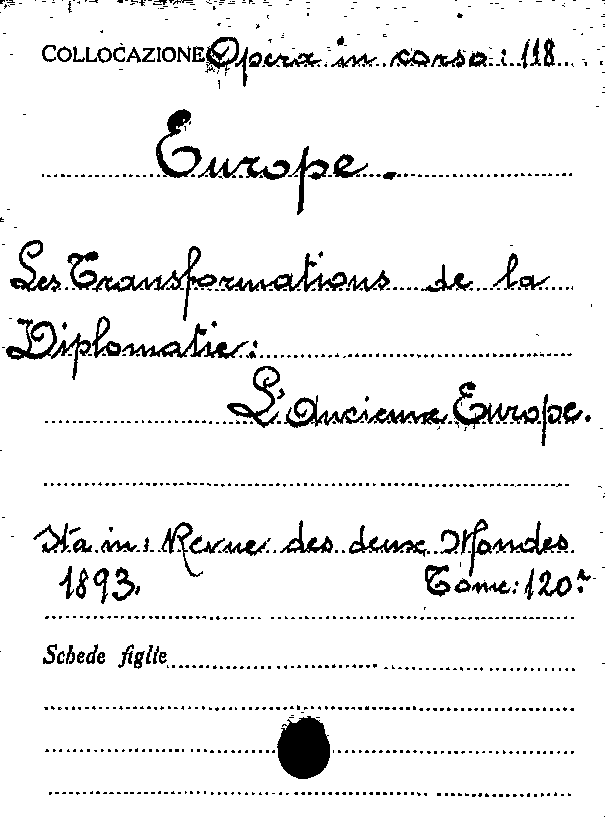 COLLOCAZIONE Opera in corso: 118
Europe.
Les Transformations de la
Diplomatie:
L'Ancienne Europe.
Sta in: Revue des deux Mondes
1893. Tome: 120º
Schede figlie